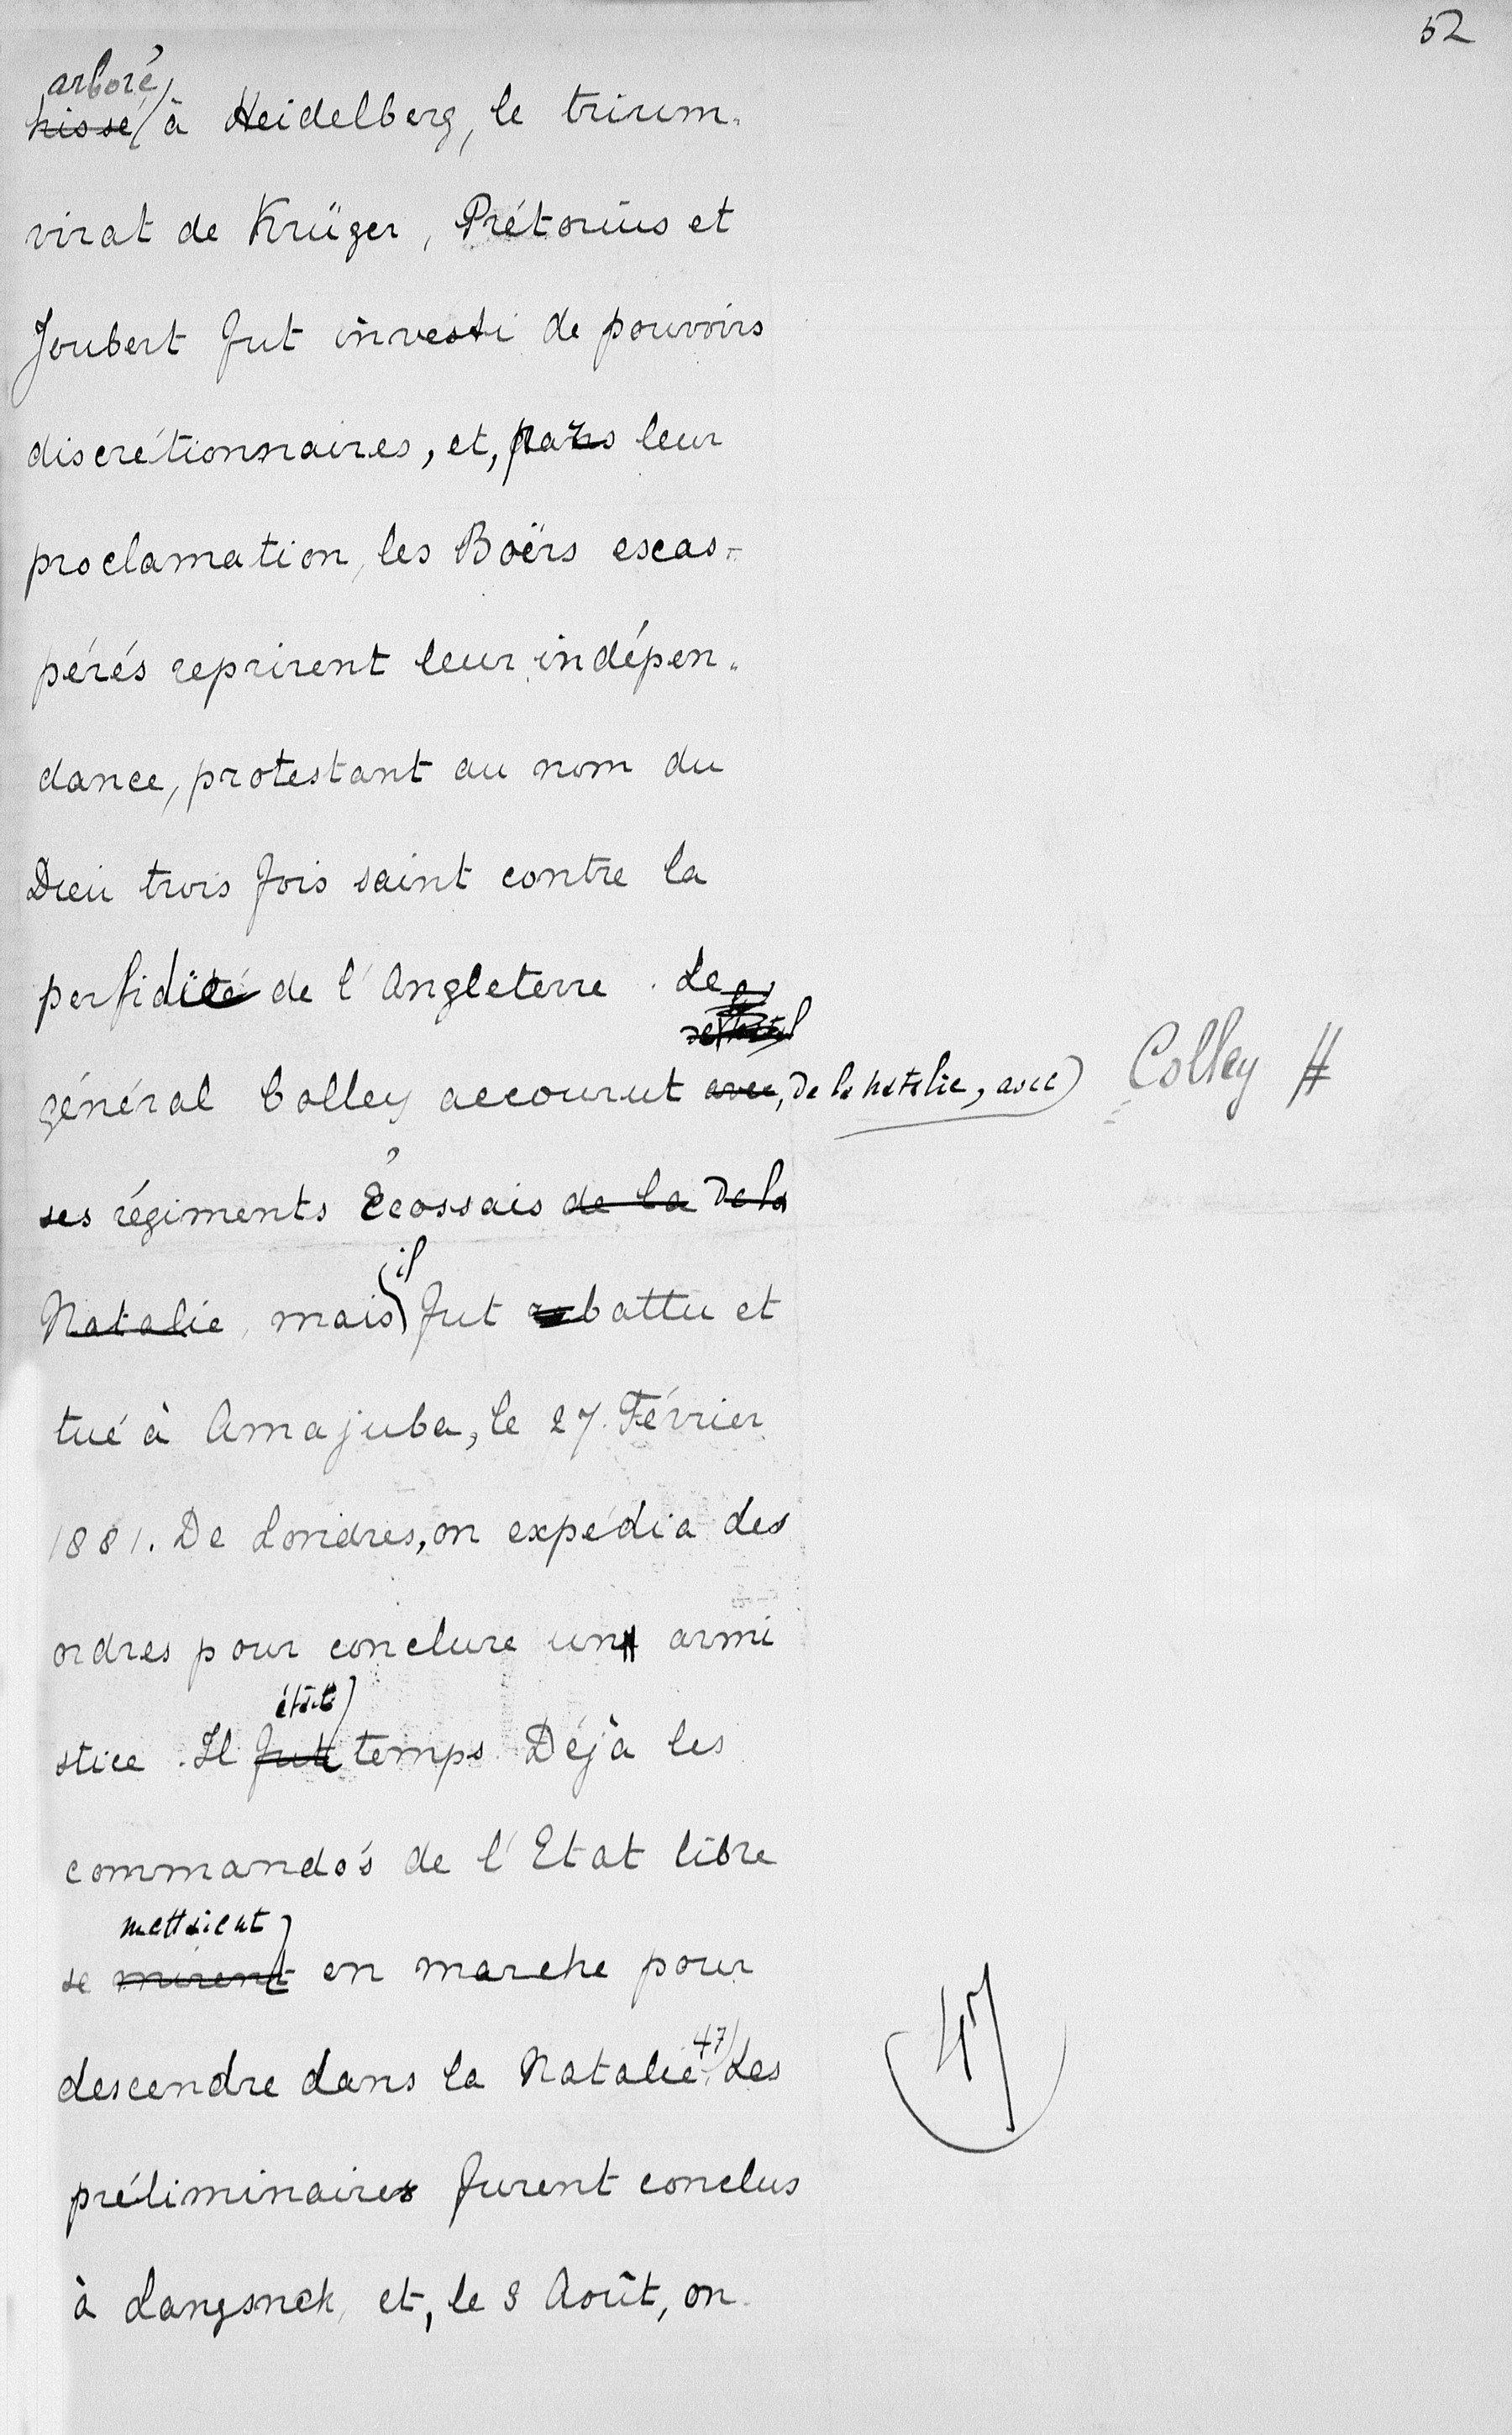 52
arboré
hissé à Heidelberg, le trium-
virat de Krüger, Prétorius et
Joubert fut investi de pouvoirs
discrétionnaires, et, par leur
proclamation, les Boërs escas-
pérés reprirent leur indépen-
dance, protestant au nom du
Dieu trois fois saint contre la
perfidie de l'Angleterre. Le
général Colley accourut avec, de la Natalie, avec Colley #
ses régiments Écossais de la De la
il
Natalie, mais fut battu et
tué à Amajuba, le 27 Février
1881. De Londres, on expédia des
ordres pour conclure un armi
était
stice. Il fut temps. Déjà les
commando's de l'Etat libre
mettaient
se mirent en marche pour
descendre dans la Natalie. 47 Les
47
préliminaires furent conclus
à Langsnek, et, le 3 Août, on